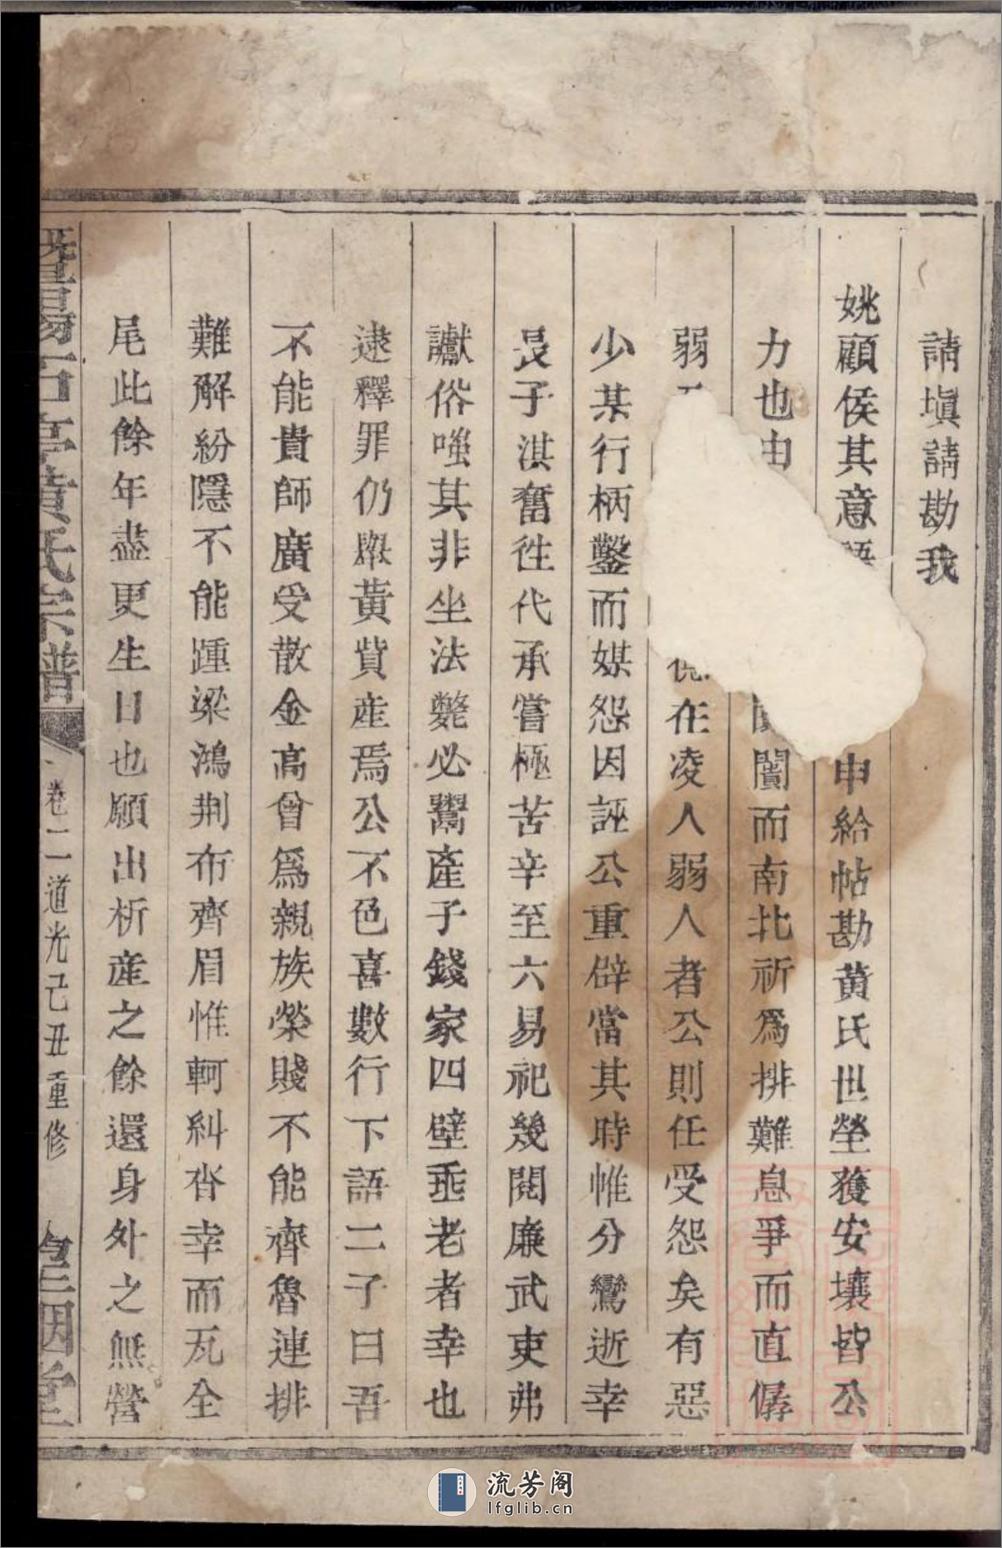 請塡請勘我
姚顧侯其意 申給帖勘黄氏世塋獲安壤皆公
力也由 闤而南北祈爲排難息爭而直僝
弱 在凌人弱人者公則任受怨矣有惡
少某行柄鑿而媒怨因誣公重辟當其時惟分鸞逝幸
長子淇奮徃代承嘗極苦辛至六易祀幾閱廉武吏弗
讞俗嗤其非坐法斃必鬻產子錢家四壁垂老者幸也
逮釋罪仍賍黄貲産焉公不色喜數行下語二子曰吾
不能貴師廣受散金高曾爲親族榮賤不能齊魯連排
難解紛隱不能踵梁鴻荆布齊眉惟軻糾沓幸而瓦全
尾此餘年盡更生日也願出析産之餘還身外之無營
暨陽石亭黄氏宗譜 卷二 道光己丑重修
流芳阁
lfglib.cn